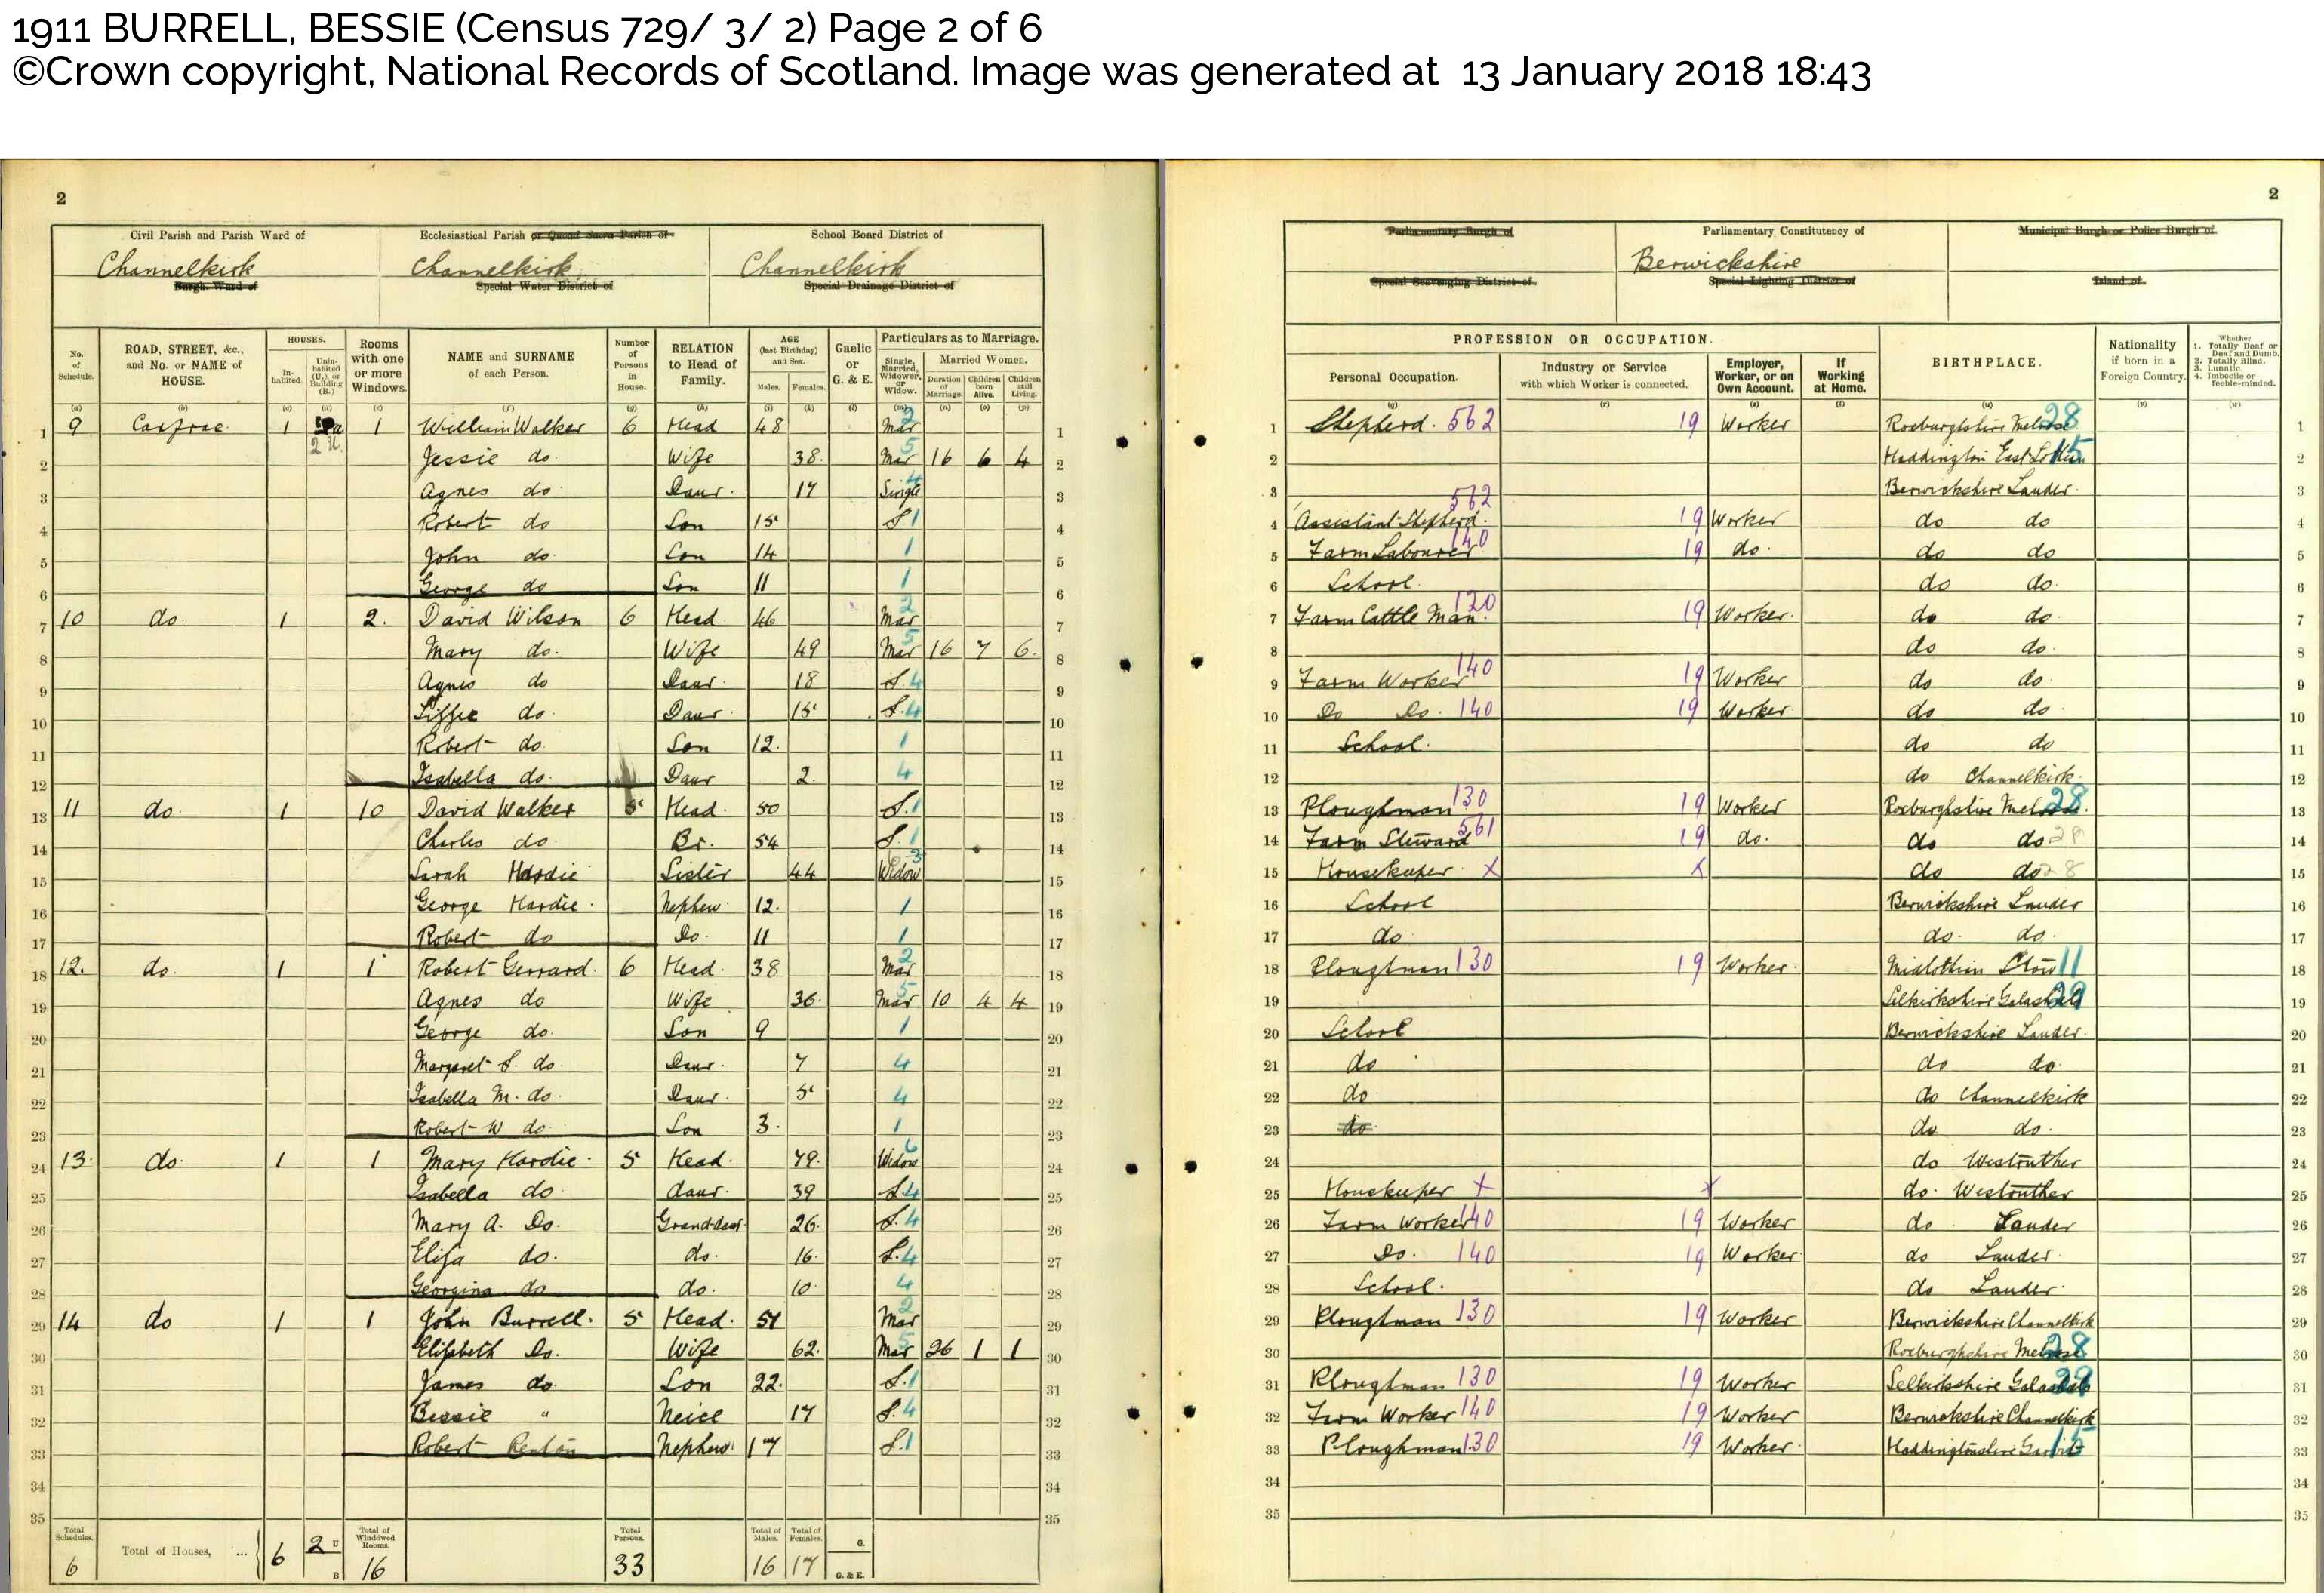 1911 BURRELL, BESSIE (Census 729/ 3/ 2) Page 2 of 6
©Crown copyright, National Records of Scotland. Image was generated at 13 January 2018 18:43
2
2
Civil Parish and Parish Ward of Ecclesiastical Parish or Quoad Sacra Parish of School Board District of
Channelkirk Channelkirk Channelkirk
Burgh Ward of Special Water District of Special Drainage District of
Parliamentary Burgh of Parliamentary Constitutency of Municipal Burgh or Police Burgh of
Berwickshire
Special Scavenging District of Special Lighting District of Island of
No. of Schedule. ROAD, STREET, &c., and No. or NAME of HOUSE. HOUSES. Inhabited. Uninhabited (U.), or Building (B.) Rooms with one or more Windows. NAME and SURNAME of each Person. Number of Persons in House. RELATION to Head of Family. AGE (last Birthday) and Sex. Males. Females. Gaelic or G. & E. Particulars as to Marriage. Single, Married, Widower, or Widow. Married Women. Duration of Marriage. Children born Alive. Children still Living.
PROFESSION OR OCCUPATION. Personal Occupation. Industry or Service with which Worker is connected. Employer, Worker, or on Own Account. If Working at Home. BIRTHPLACE. Nationality if born in a Foreign Country. Whether 1. Totally Deaf or Deaf and Dumb. 2. Totally Blind. 3. Lunatic. 4. Imbecile or feeble-minded.
1 9 Carfrae 1 2 U. 1 William Walker 6 Head 48 Mar 2 1
2 Jessie do Wife 38. Mar 5 16 6 4 2
3 Agnes do Daur. 17 Single 4 3
4 Robert do Son 15 S 1 4
5 John do. Son 14 1 5
6 George do Son 11 1 6
7 10 do. 1 2. David Wilson 6 Head 46 Mar 2 7
8 Mary do. Wife 49 Mar 5 16 7 6. 8
9 Agnes do Daur. 18 S. 4 9
10 do. Daur. 15 S. 4 10
11 Robert do Son 12. 1 11
12 Isabella do. Daur 2. 4 12
13 11 do. 1 10 David Walker 5 Head. 50 S. 1 13
14 Charles do. Br. 54 S. 1 14
15 Sarah Hardie Sister 44 Widow 3 15
16 George Hardie. Nephew 12. 1 16
17 Robert do Do. 11 1 17
18 12. do. 1 1 Robert Gerrard. 6 Head. 38 Mar 2 18
19 Agnes do Wife 36. Mar 5 10 4 4 19
20 George do. Son 9 1 20
21 Margaret S. do. Daur. 7 4 21
22 Isabella M. do. Daur. 5 4 22
23 Robert W do. Son 3. 1 23
24 13. do. 1 1 Mary Hardie. 5 Head. 79. Widow 6 24
25 Isabella do daur. 39 S 4 25
26 Mary A. Do. Grand-daur. 26. S. 4 26
27 Eliza do. do. 16. S. 4 27
28 Georgina do do. 10. 4 28
29 14 do 1 1 John Burrell. 5 Head. 57 Mar 2 29
30 Elizabeth Do. Wife 62. Mar 5 26 1 1 30
31 James do. Son 22. S. 1 31
32 Bessie " Neice 17 S. 4 32
33 Robert Renton Nephew. 17 S. 1 33
34 34
35 35
Total Schedules. 6 Total of Houses, ... 6 2 U B Total of Windowed Rooms. 16 Total Persons. 33 Total of Males. 16 Total of Females. 17 G. G. & E.
1 Shepherd. 562 19 Worker Roxburghshire Melrose 28 1
2 Haddington East Lothian 15 2
3 Berwickshire Lauder. 3
4 Assistant Shepherd. 562 19 Worker do do 4
5 Farm Labourer 140 19 do. do do 5
6 School. do do. 6
7 Farm Cattle Man. 120 19 Worker. do do. 7
8 do do. 8
9 Farm Worker 140 19 Worker do do. 9
10 Do Do. 140 19 Worker. do do. 10
11 School. do do 11
12 do Channelkirk. 12
13 Ploughman 130 19 Worker Roxburghshire Melrose. 28 13
14 Farm Steward 561 19 do. do do 28 14
15 Housekeeper X X do do 28 15
16 School Berwickshire Lauder 16
17 do do. do. 17
18 Ploughman 130 19 Worker. Midlothian Stow 11 18
19 Selkirkshire Galashiels 29 19
20 School Berwickshire Lauder. 20
21 do do do. 21
22 do do Channelkirk 22
23 do do do. 23
24 do Westruther 24
25 Housekeeper X X do. Westruther 25
26 Farm Worker 140 19 Worker do Lauder 26
27 Do. 140 19 Worker. do Lauder. 27
28 School. do Lauder. 28
29 Ploughman 130 19 Worker Berwickshire Channelkirk 29
30 Roxburghshire Melrose 28 30
31 Ploughman 130 19 Worker Selkirkshire Galashiels 29 31
32 Farm Worker 140 19 Worker Berwickshire Channelkirk 32
33 Ploughman 130 19 Worker. Haddingtonshire 15 33
34 34
35 35